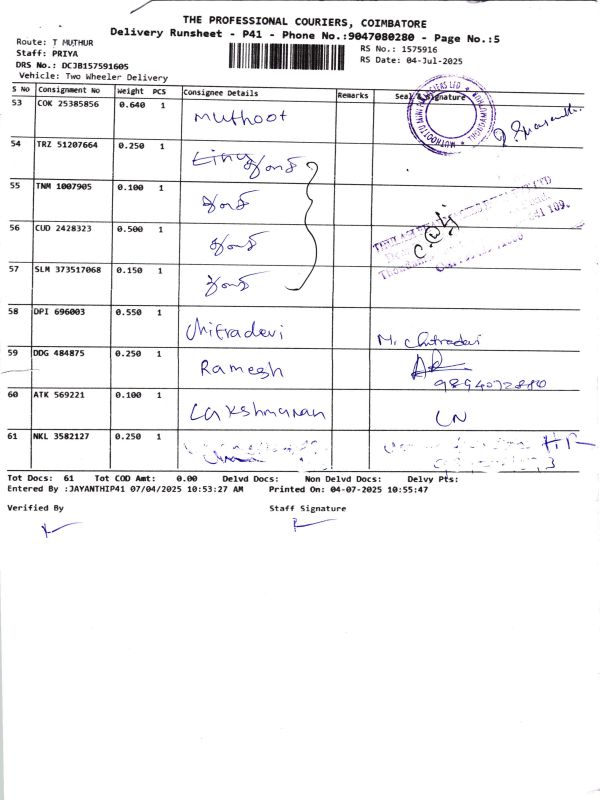 THE PROFESSIONAL COURIERS, COIMBATORE
Delivery Runsheet - P41 - Phone No.:9047080280 - Page No.:5
Route: T MUTHUR
Staff: PRIYA
DRS No.: DCJB157591605
Vehicle: Two Wheeler Delivery
RS No.: 1575916
RS Date: 04-Jul-2025
S No Consignment No Weight PCS Consignee Details Remarks Seal & Signature
53 COK 25385856 0.640 1 Muthoot
54 TRZ 51207664 0.250 1
55 TNM 1007905 0.100 1
56 CUD 2428323 0.500 1
57 SLM 373517068 0.150 1
58 DPI 696003 0.550 1 Chitradevi M. Chitradevi
59 DDG 484875 0.250 1 Ramesh
60 ATK 569221 0.100 1 Lakshmanan LN
61 NKL 3582127 0.250 1
Tot Docs: 61 Tot COD Amt: 0.00 Delvd Docs: Non Delvd Docs: Delvy Pts:
Entered By :JAYANTHIP41 07/04/2025 10:53:27 AM Printed On: 04-07-2025 10:55:47
Verified By Staff Signature